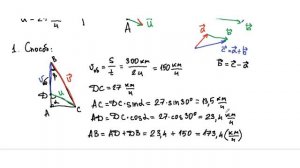 u = 27 км/ч
A
u⃗
a⃗
b⃗
c⃗ = a⃗ + b⃗
b⃗ = c⃗ - a⃗
1. Способ:
B
D
A
C
u
α
= S/t = 300км/2ч = 150 км/ч
DC = 27 км/ч
AC = DC·sinα = 27·sin30° = 13,5 км/ч
AD = DC·cosα = 27·cos30° = 23,4 км/ч
AB = AD + DB = 23,4 + 150 = 173,4 (км/ч)